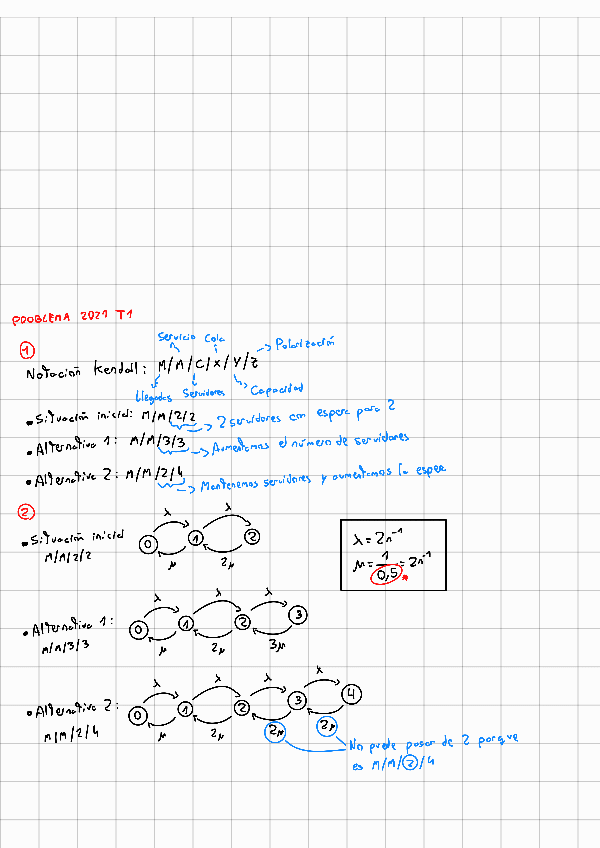 PROBLEMA 2021 T1
1
Servicio Cola
Polarización
Notación Kendall: M/M/C/X/Y/Z
Llegadas Servidores Capacidad
• Situación inicial: M/M/2/2
2 servidores con espera para 2
• Alternativa 1: M/M/3/3
Aumentamos el número de servidores
• Alternativa 2: M/M/2/4
Mantenemos servidores y aumentamos la esper
2
• Situación inicial
M/M/2/2
λ λ
0 1 2
μ 2μ
λ = 2n⁻¹
μ = 1/0,5 = 2n⁻¹
• Alternativa 1:
M/M/3/3
λ λ λ
0 1 2 3
μ 2μ 3μ
• Alternativa 2:
M/M/2/4
λ λ λ λ
0 1 2 3 4
μ 2μ 2μ 2μ
No puede pasar de 2 porque
es M/M/2/4